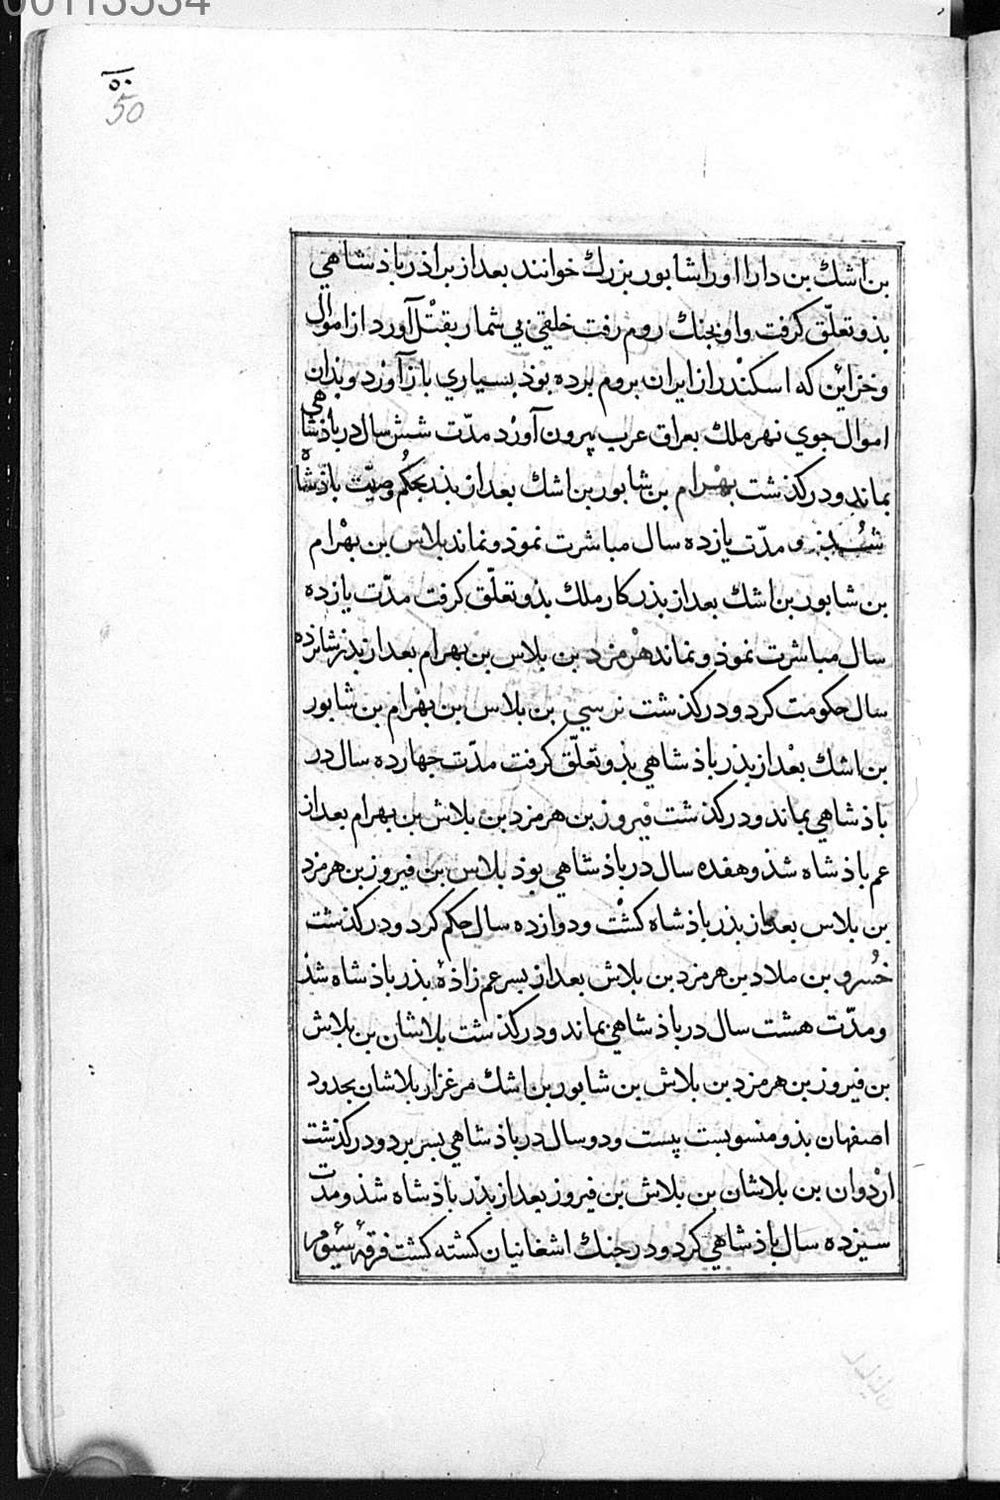 00113534
۵۰
50
بن اشك بن دارا اورا شابور بزرك خوانند بعد از براذر باذشاهي
بذو تعلّق كرفت واو بجنك روم رفت خلقي بي شمار بقتل آورد از اموال
وخزاين كه اسكندر از ايران بروم برده بوذ بسياري باز آورد وبذان
اموال جوي نهر ملك بعراق عرب بيرون آورد مدّت شش سال در باذشاهي
بماند ودركذشت بهرام بن شابور بن اشك بعد از بذر بحكم وصيّت باذشاه
شد و مدّت يازده سال مباشرت نموذ ونماند بلاس بن بهرام
بن شابور بن اشك بعد از بذر كار ملك بذو تعلّق كرفت مدّت يازده
سال مباشرت نموذ ونماند هرمزد بن بلاس بن بهرام بعد از بذر شانزده
سال حكومت كرد ودركذشت نرسي بن بلاس بن بهرام بن شابور
بن اشك بعد از بذر باذشاهي بذو تعلّق كرفت مدّت جهارده سال در
باذشاهي بماند ودركذشت فيروز بن هرمزد بن بلاش بن بهرام بعد از
عم باذشاه شذ وهفده سال در باذشاهي بوذ بلاس بن فيروز بن هرمزد
بن بلاس بعد از بذر باذشاه كشت ودوازده سال حكم كرد ودركذشت
خسرو بن ملاد بن هرمزد بن بلاش بعد از بسر عم زاذۀ بذر باذشاه شذ
ومدّت هشت سال در باذشاهي بماند ودركذشت بلاشان بن بلاش
بن فيروز بن هرمزد بن بلاش بن شابور بن اشك مرغزار بلاشان بحدود
اصفهان بذو منسوبست بيست ودو سال در باذشاهي بسر برد ودركذشت
اردوان بن بلاشان بن بلاش بن فيروز بعد از بذر باذشاه شذ ومدت
سيزده سال باذشاهي كرد ودر جنك اشغانيان كشته كشت فرقۀ سيّوم